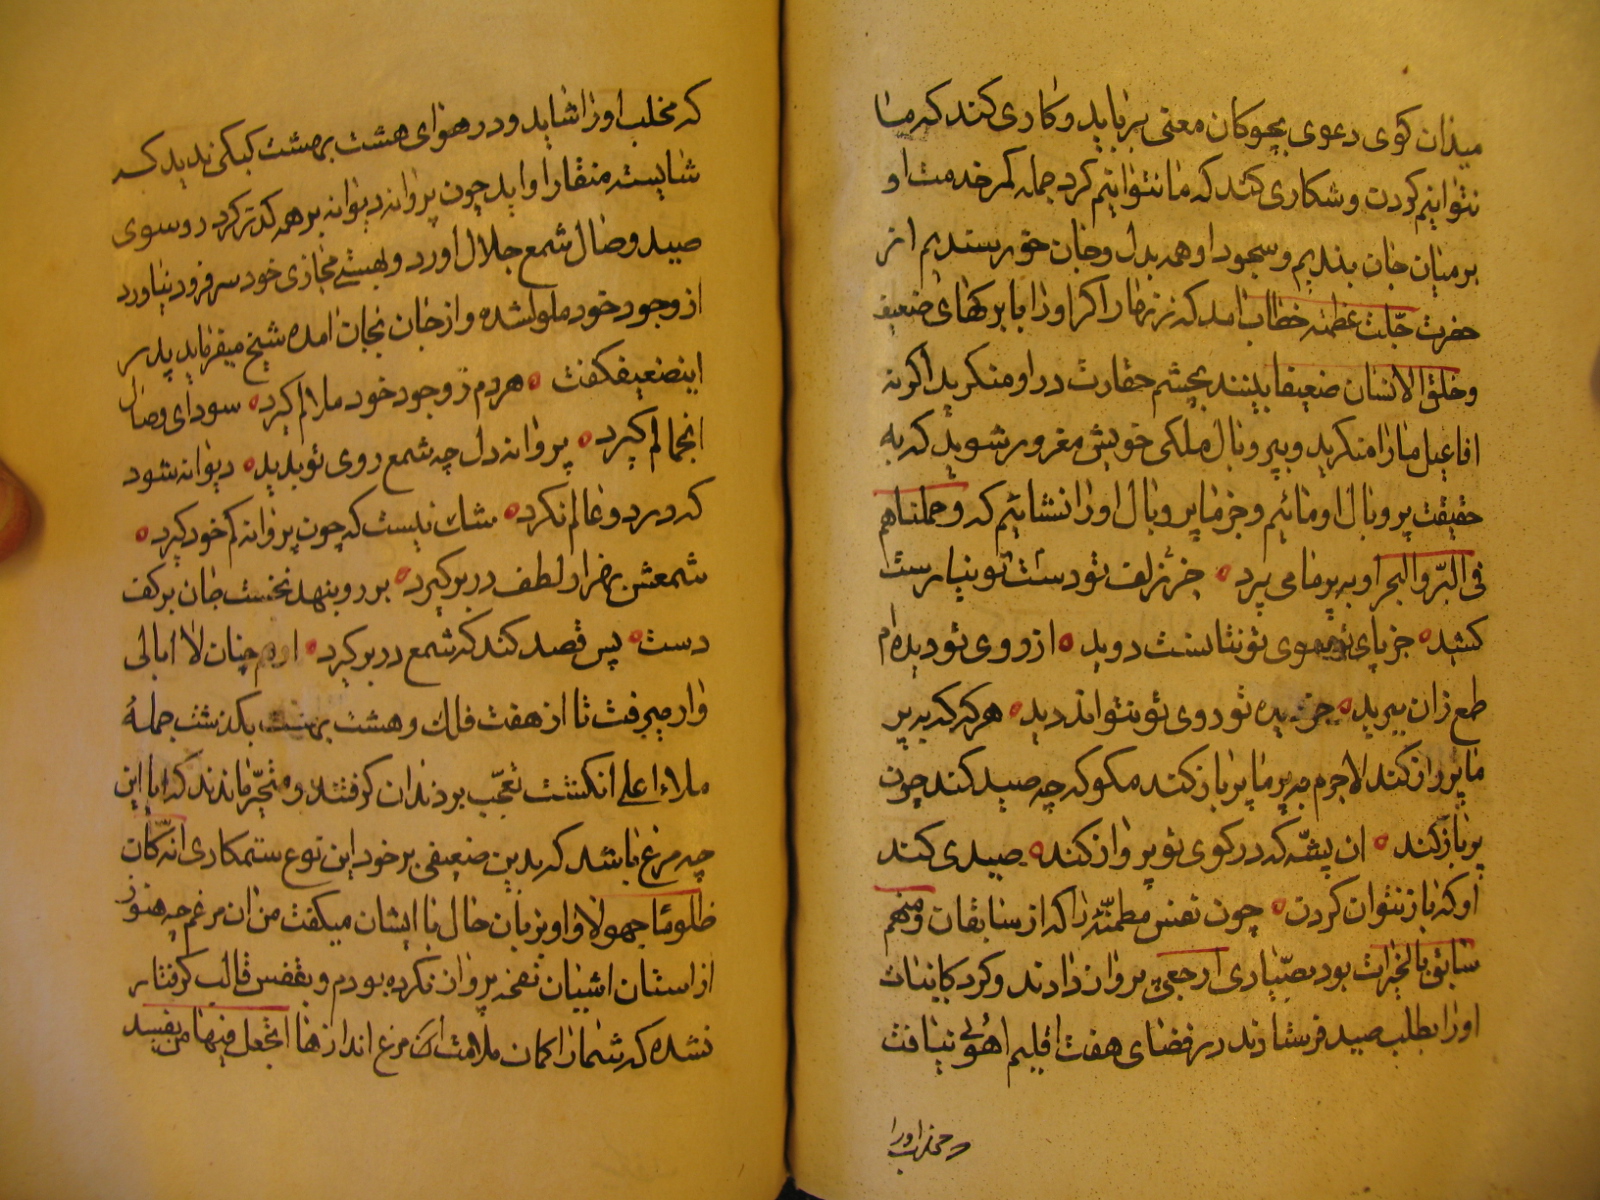 میدان کوی دعوی بچوکان معنی برباید و کاری کند که ما
نتوانیم کردت و شکاری کند که ما نتوانیم کرد جمله کمر خدمت او
بر میان جان بندیم و سجود او همه بدل و جان خورسندیم از
حضرت جلت عظمته خطاب امد که نزنهار اکر او را با برکهای ضعیف
و خلق الانسان ضعیفا بینند بچشم حقارت در او منکرید اکرنه
افاعیل مارا منکرید و بپر و بال ملکی خویش مغرور شوید که به
حقیقت پر و بال او مائیم و جز ما پر و بال او را نشائیم که و حملناهم
فی البر و البحر او به پر ما می پرد جز زلف تو دست تو نیارست
کشید جز پای تو سوی تو نتانست دوید از روی تو دیده ام
طمع زان ببرید جز دیده تو روی تو نتواند دید هر که که به پر
ما پرواز کند لاجرم به پر ما پر باز کند مکو که چه صید کند چون
پر باز کند ان پشه که در کوی تو پرواز کند صیدی کند
او که باز نتوان کردت چون نفس مطمئنه را که از سابقات و منهم
سابق بالخیرات بود بصیادی ارجعی پرواز دادند و کرد کاینات
او را بطلب صید فرستادند در فضای هفت اقلیم اهویی نیافت
و مخلب اورا
که مخلب او را شاید و در هوای هشت بهشت کبکی ندید که
شایسته منقار او اید چون پروانه دیوانه بر همه کذر کرد روسوی
صید وصال شمع جلال اورد و بهستی مجازی خود سر فرود نیاورد
از وجود خود ملول شده و از جان نجان امده شیخ میفرماید پدر
این ضعیف کفت هردم ز وجود خود ملالم کیرد سودای وصال
انجمالم کیرد پروانه دل چه شمع روی تو بدید دیوانه شود
که در دو عالم نکرد شک نیست که چون پروانه کم خود کیرد
شمعش بهزار لطف در بر کیرد بر رو بنهد نخست جان بر کف
دست پس قصد کند که شمع در بر کیرد او هم چنان لا ابالی
وار میرفت تا از هفت فلک و هشت بهشت بکذشت جملهٔ
ملاء اعلی انکشت تعجب بر دندان کرفتند و متحیر ماندند که ایا این
چه مرغ باشد که بدین ضعیفی بر خود این نوع ستمکاری انه کان
ظلوما جهولا و او بزبان حال با ایشان میکفت من ان مرغم چه هنوز
از استان اشیان نفخه پرواز نکرده بودم و بقفس قالب کرفتار
نشده که شما را کمان ملامت ان مرغ انداز ها اتجعل فیها من یفسد